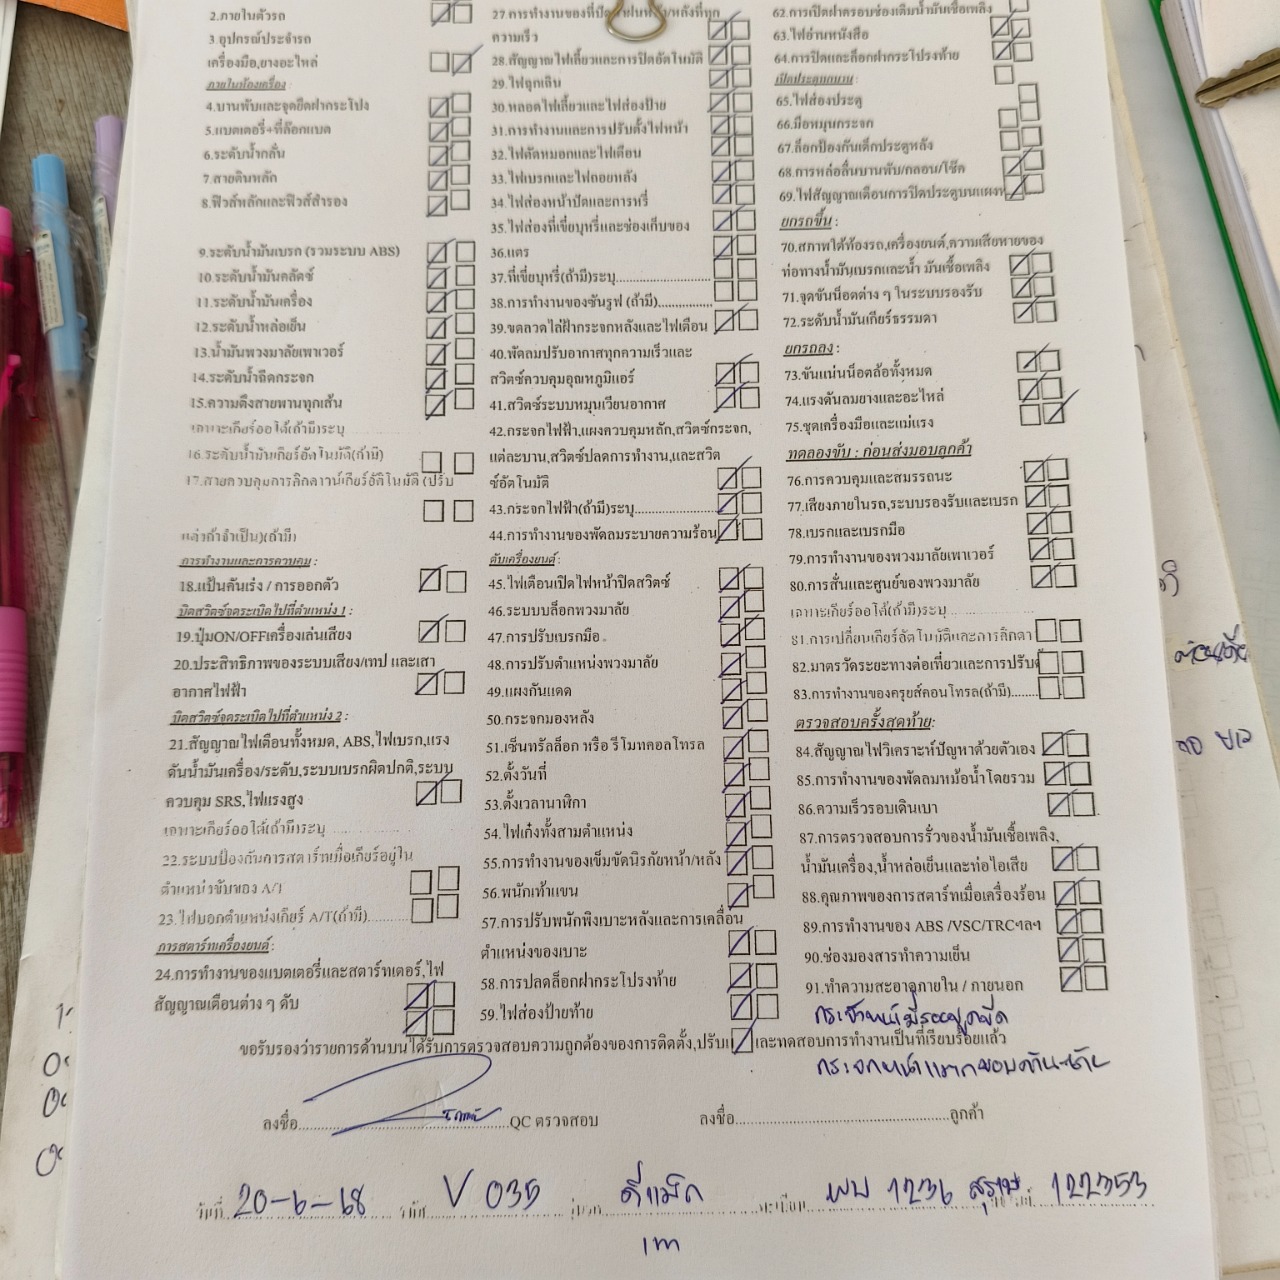 2.ภายในตัวรถ
3.อุปกรณ์ประจำรถ
เครื่องมือ,ยางอะไหล่
ภายในห้องเครื่อง:
4.บานพับและจุดยึดฝากระโปง
5.แบตเตอรี่+ที่ล๊อกแบต
6.ระดับน้ำกลั่น
7.สายดินหลัก
8.ฟิวส์หลักและฟิวส์สำรอง
9.ระดับน้ำมันเบรก (รวมระบบ ABS)
10.ระดับน้ำมันคลัตช์
11.ระดับน้ำมันเครื่อง
12.ระดับน้ำหล่อเย็น
13.น้ำมันพวงมาลัยเพาเวอร์
14.ระดับน้ำฉีดกระจก
15.ความตึงสายพานทุกเส้น
เฉพาะเกียร์ออโต้(ถ้ามี)ระบุ
16.ระดับน้ำมันเกียร์อัตโนมัติ(ถ้ามี)
17.สายควบคุมการคิกดาวน์เกียร์อัติโนมัติ (ปรับ
แต่งถ้าจำเป็น)(ถ้ามี)
การทำงานและการควบคุม:
18.แป้นคันเร่ง / การออกตัว
บิดสวิตซ์จุดระเบิดไปที่ตำแหน่ง 1:
19.ปุ่มON/OFFเครื่องเล่นเสียง
20.ประสิทธิภาพของระบบเสียง/เทป และเสา
อากาศไฟฟ้า
บิดสวิตซ์จุดระเบิดไปที่ตำแหน่ง 2:
21.สัญญาณไฟเตือนทั้งหมด, ABS,ไฟเบรก,แรง
ดันน้ำมันเครื่อง/ระดับ,ระบบเบรกผิดปกติ,ระบบ
ควบคุม SRS,ไฟแรงสูง
เฉพาะเกียร์ออโต้(ถ้ามี)ระบุ
22.ระบบป้องกันการสตาร์ทเมื่อเกียร์อยู่ใน
ตำแหน่งขับของ A/T
23.ไฟบอกตำแหน่งเกียร์ A/T(ถ้ามี)
การสตาร์ทเครื่องยนต์:
24.การทำงานของแบตเตอรี่และสตาร์ทเตอร์,ไฟ
สัญญาณเตือนต่าง ๆ ดับ
27.การทำงานของที่ปัด
ความเร็ว
28.สัญญาณไฟเลี้ยวและการปิดอัตโนมัติ
29.ไฟฉุกเฉิน
30.หลอดไฟเลี้ยวและไฟส่องป้าย
31.การทำงานและการปรับตั้งไฟหน้า
32.ไฟตัดหมอกและไฟเตือน
33.ไฟเบรกและไฟถอยหลัง
34.ไฟส่องหน้าปัดและการหรี่
35.ไฟส่องที่เขี่ยบุหรี่และช่องเก็บของ
36.แตร
37.ที่เขี่ยบุหรี่(ถ้ามี)ระบุ
38.การทำงานของซันรูฟ (ถ้ามี)
39.ขดลวดไล่ฝ้ากระจกหลังและไฟเตือน
40.พัดลมปรับอากาศทุกความเร็วและ
สวิตซ์ควบคุมอุณหภูมิแอร์
41.สวิตซ์ระบบหมุนเวียนอากาศ
42.กระจกไฟฟ้า,แผงควบคุมหลัก,สวิตซ์กระจก,
แต่ละบาน,สวิตซ์ปลดการทำงาน,และสวิต
ซ์อัตโนมัติ
43.กระจกไฟฟ้า(ถ้ามี)ระบุ
44.การทำงานของพัดลมระบายความร้อน
ดับเครื่องยนต์:
45.ไฟเตือนเปิดไฟหน้าปิดสวิตซ์
46.ระบบบล็อกพวงมาลัย
47.การปรับเบรกมือ
48.การปรับตำแหน่งพวงมาลัย
49.แผงกันแดด
50.กระจกมองหลัง
51.เซ็นทรัลล็อก หรือ รีโมทคอลโทรล
52.ตั้งวันที่
53.ตั้งเวลานาฬิกา
54.ไฟเก๋งทั้งสามตำแหน่ง
55.การทำงานของเข็มขัดนิรภัยหน้า/หลัง
56.พนักเท้าแขน
57.การปรับพนักพิงเบาะหลังและการเคลื่อน
ตำแหน่งของเบาะ
58.การปลดล็อกฝากระโปรงท้าย
59.ไฟส่องป้ายท้าย
62.การเปิดฝาครอบช่องเติมน้ำมันเชื้อเพลิง
63.ไฟอ่านหนังสือ
64.การปิดและล็อกฝากระโปรงท้าย
เปิดประตูทุกบาน:
65.ไฟส่องประตู
66.มือหมุนกระจก
67.ล็อกป้องกันเด็กประตูหลัง
68.การหล่อลื่นบานพับ/กลอน/โช๊ค
69.ไฟสัญญาณเตือนการปิดประตูบนแผง
ยกรถขึ้น:
70.สภาพใต้ท้องรถ,เครื่องยนต์,ความเสียหายของ
ท่อทางน้ำมันเบรกและน้ำ มันเชื้อเพลิง
71.จุดขันน็อตต่าง ๆ ในระบบรองรับ
72.ระดับน้ำมันเกียร์ธรรมดา
ยกรถลง:
73.ขันแน่นน็อตล้อทั้งหมด
74.แรงดันลมยางและอะไหล่
75.ชุดเครื่องมือและแม่แรง
ทดลองขับ : ก่อนส่งมอบลูกค้า
76.การควบคุมและสมรรถนะ
77.เสียงภายในรถ,ระบบรองรับและเบรก
78.เบรกและเบรกมือ
79.การทำงานของพวงมาลัยเพาเวอร์
80.การสั่นและศูนย์ของพวงมาลัย
เฉพาะเกียร์ออโต้(ถ้ามี)ระบุ
81.การเปลี่ยนเกียร์อัตโนมัติและการคิกดา
82.มาตรวัดระยะทางต่อเที่ยวและการปรับ
83.การทำงานของครุยส์คอนโทรล(ถ้ามี)
ตรวจสอบครั้งสุดท้าย:
84.สัญญาณไฟวิเคราะห์ปัญหาด้วยตัวเอง
85.การทำงานของพัดลมหม้อน้ำโดยรวม
86.ความเร็วรอบเดินเบา
87.การตรวจสอบการรั่วของน้ำมันเชื้อเพลิง,
น้ำมันเครื่อง,น้ำหล่อเย็นและท่อไอเสีย
88.คุณภาพของการสตาร์ทเมื่อเครื่องร้อน
89.การทำงานของ ABS /VSC/TRCฯลฯ
90.ช่องมองสารทำความเย็น
91.ทำความสะอาดภายใน / ภายนอก
กระจกหน้ามีรอยขูดขีด
ขอรับรองว่ารายการด้านบนได้รับการตรวจสอบความถูกต้องของการติดตั้ง,ปรับแ และทดสอบการทำงานเป็นที่เรียบร้อยแล้ว
กระจกหน้าแตกขอบด้านซ้าย
ลงชื่อ QC ตรวจสอบ ลงชื่อ ลูกค้า
วันที่ 20-6-68 รหัส V 035 รุ่นรถ ดีแม็ก ทะเบียน ผบ 1236 สุราษ 122353